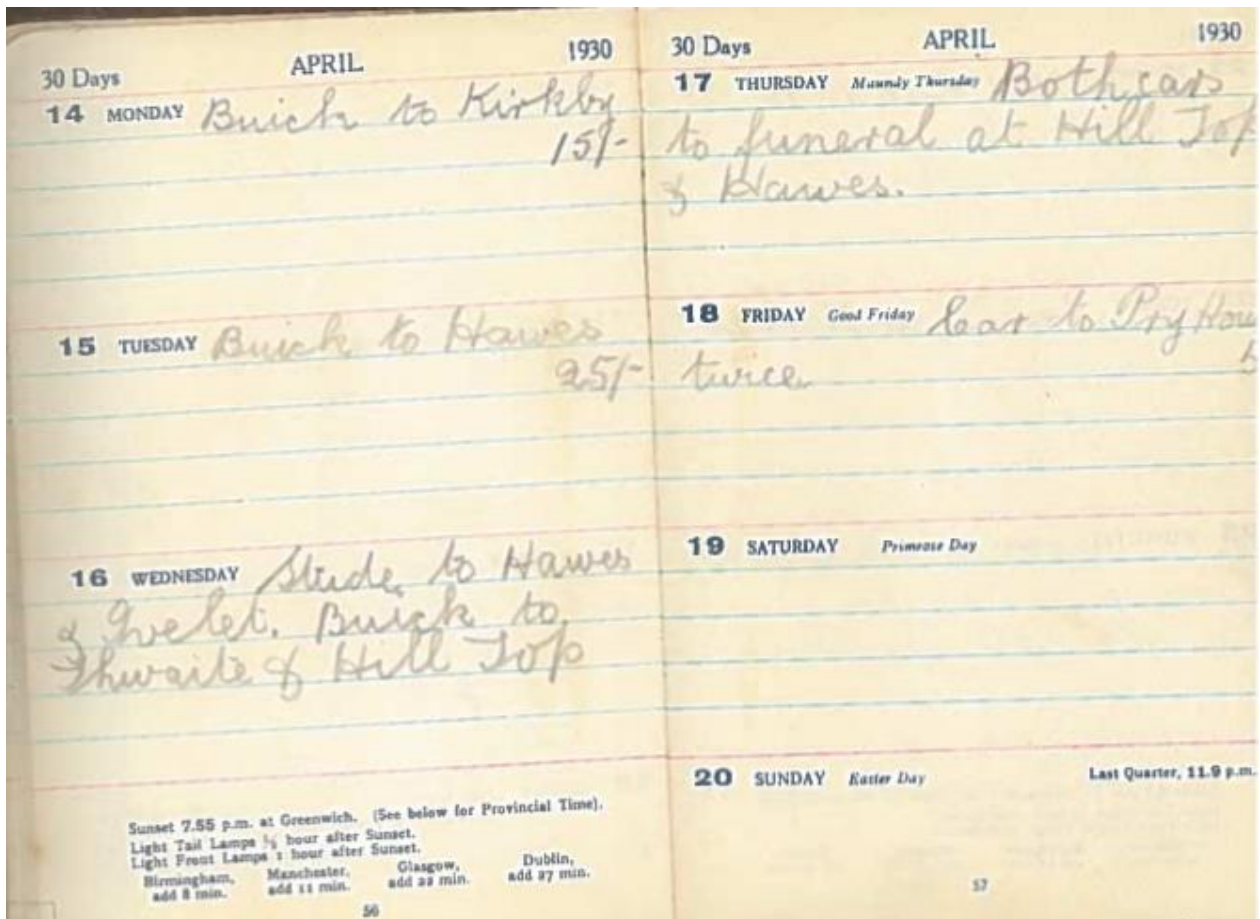 30 Days APRIL 1930
14 MONDAY Buick to Kirkby
15/-
15 TUESDAY Buick to Hawes
25/-
16 WEDNESDAY Stude. to Hawes
& Ivelet. Buick to
Thwaite & Hill Top
Sunset 7.55 p.m. at Greenwich. (See below for Provincial Time).
Light Tail Lamps ½ hour after Sunset.
Light Front Lamps 1 hour after Sunset.
Birmingham, Manchester, Glasgow, Dublin,
add 8 min. add 11 min. add 22 min. add 27 min.
56
30 Days APRIL 1930
17 THURSDAY Maundy Thursday Both cars
to funeral at Hill Top
& Hawes.
18 FRIDAY Good Friday Car to Pry Hou
twice
19 SATURDAY Primrose Day
20 SUNDAY Easter Day Last Quarter, 11.9 p.m.
57